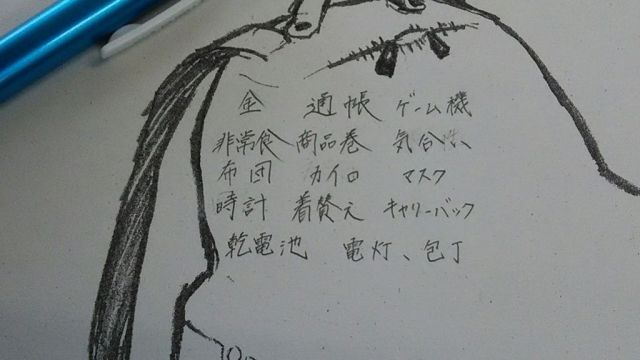 金 通帳 ゲーム機
非常食 商品巻 気合
布団 カイロ マスク
時計 着賛え キャリーバック
乾電池 電灯、包丁